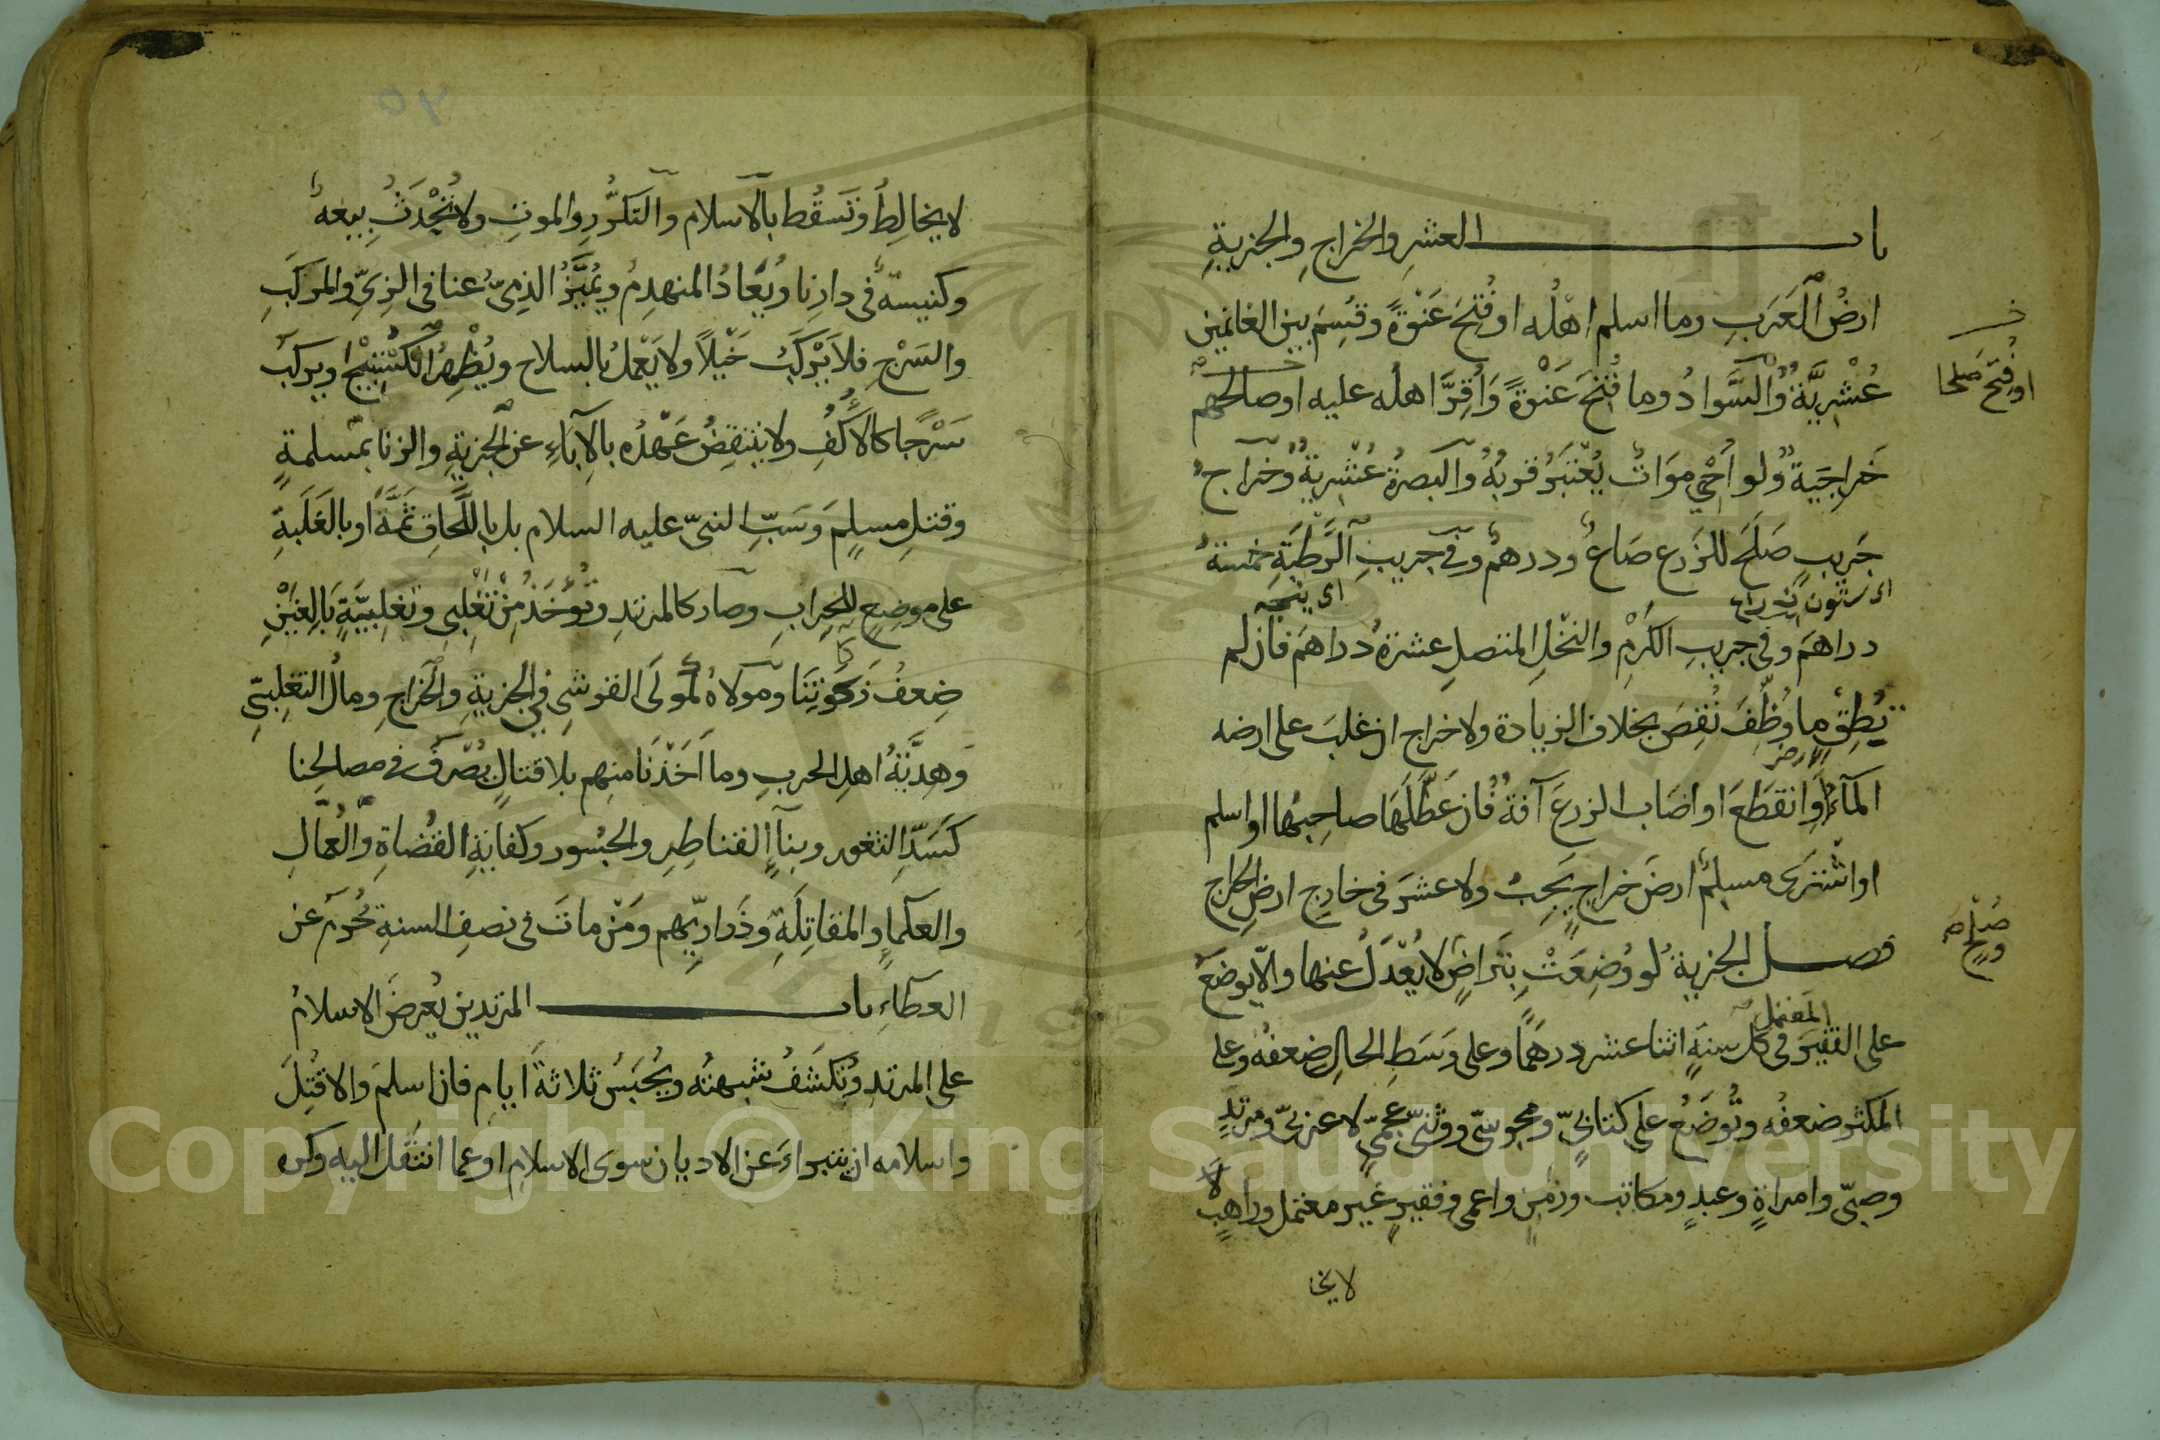 باب العشر والخراج والجزية
ارضُ العَرَبِ وما اسلم اهلُه او فُتِحَ عَنْوَةً وقُسِمَ بين الغانمين
عُشْرِيَّةٌ والسَّوادُ وما فُتِحَ عَنْوَةً وَاُقِرَّ اهله عليه او صالحهم
خَرَاجِيَةٌ ولو اُحْيِ مَوَاتٌ يُعْتَبَرُ قربُهُ والبَصرةُ عُشْرِيةٌ وخراج
جَرِيبٍ صَلَحَ للزَرع صَاعٌ ودرهمٌ وفى جريبِ الرَّطْبَةِ خمسةُ
دراهمَ وفى جريبِ الكَرْمِ والنخْلِ المتصلِ عشرةُ دراهمَ فان لم
تُطِقْ ما وُظِّفَ نُقِصَ بخلاف الزيادة ولا خراج ان غلبَ على ارضه
الارض
المآءُ اَوِ انقطَعَ او اصَاب الزرعَ آفةٌ فان عَطَّلَهَا صاحِبُها او اسلم
او اشترَى مسلِمٌ ارضَ خراجٍ يَجِبُ ولا عشرَ فى خارِجِ ارضِ الخراج
فصل الجزية لو وُضِعَتْ بِتَرَاضٍ لا يُعْدَلُ عنها والّا يوضعُ
المعتمل
على الفقيرِ فى كل سنةٍ اثنا عشر درهَمًا وعلى وَسَطِ الحالِ ضعفُه وعلى
المكثر ضعفُه وتُوضَعُ على كتابىٍّ ومجوسىّ ووثنىّ عجمىّ لا عربىّ ومرتدٍ
وصبىّ وامراةٍ وعبدٍ ومكاتب وزمِنٍ واعمى وفقيرٍ غير معتمل وراهبٍ
لا
لا يخا
او فُتِحَ صلحا
صُلْحٍ
لا يخالِطُ وتَسقُط بالاسلام والتكرُّرِ والموتِ ولا تُحْدَثُ بيعهٌ
وكنيسةٌ فى دارِنا ويُعَادُ المنهدِمُ ويُمَيَّزُ الذِمىّ عنا فى الزِىِّ والمَركَبِ
والسَرْجِ فلا يَرْكَبُ خَيْلاً ولا يَعْمَلُ بالسلاح ويُظْهِرُ الكُسْتِيْجَ ويركبُ
سَرْجًا كالاَكُفِ ولا ينتقِضُ عَهْدُه بالاِبآءِ عن الجزيةِ والزنا بمسلمةٍ
وقتلِ مسلِمٍ وَسَبِّ النبىّ عليه السلام بل باللَّحاقِ ثَمَّةَ او بالغَلَبَةِ
على موضِعٍ للحِرابِ وصار كالمرتدِ وتُؤخَذُ مِنْ تَغْلِبِى وتغلِبيّةٍ بَالِغَيْنِ
ضِعفُ زَكوٰتِنَا ومولاهُ كمولَى القرشِى فى الجزيةِ والخَراجِ ومالُ التغلِبىّ
وَهِدَيَّةُ اهلِ الحربِ وما اَخَذْنَا منهم بلا قتالٍ يُصْرَفُ فى مصالحِنا
كَسَدِّ الثغورِ وبنآءِ القناطِرِ والجُسُورِ وكفايةِ القُضاةِ والعُمّالِ
والعلمآءِ والمقاتِلَةِ وَذَرارِيِّهِم وَمَنْ ماتَ فى نصفِ السنةِ حُرِمَ عن
العطاءِ باب المرتدين يُعرضُ الاسلامُ
على المرتدِ وتُكشَفُ شبهتُه ويُحْبَسُ ثلاثةَ ايامٍ فان اسلمَ والا قُتِلَ
واسلامه ان يتبراءَ عن الاديان سوى الاسلامِ او عما انتقَل اليه وكره